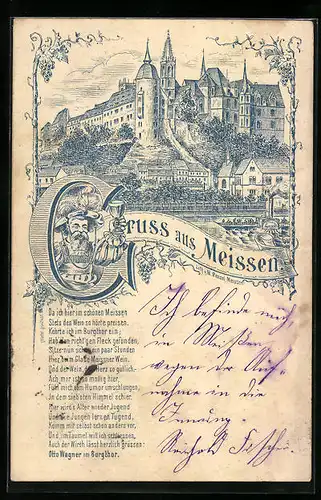 Gruss aus Meissen.
Da ich hier im schönen Meissen
Stets den Wein so hörte preisen,
Kehrte ich im Burgthor ein;
Hab den richt'gen Fleck gefunden,
Sitze nun schon ein paar Stunden
Hier beim Glase Meissner Wein.
Und der Wein, der Herz so gütlich,
Ach, mir ist so mollig hier,
Fühl' mich vom Humor umschlungen,
In dem siebten Himmel schier.
Hier wird's Alter wieder Jugend
Und die Jungen lernen Tugend,
Kommt mir selbst schon anders vor,
Und, im Taumel will ich schliessen,
Auch der Wirth lässt herzlich grüssen:
Otto Wagner im Burgthor.
Ich befinde mich
in Meissen
wegen der Auf-
nahme in die
Innung.
Reinhold